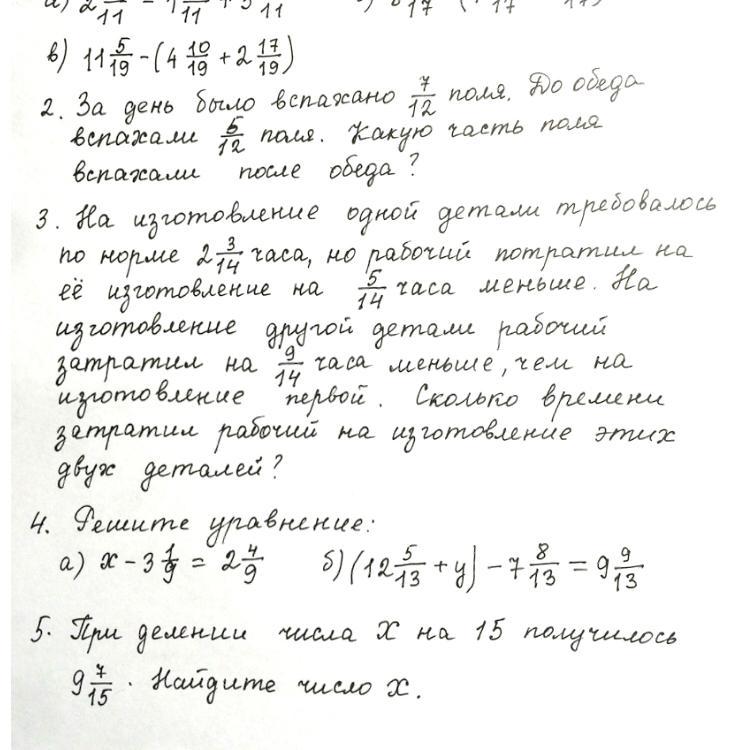 в) 11 5/19 - (4 10/19 + 2 17/19)
2. За день было вспахано 7/12 поля. До обеда
вспахали 5/12 поля. Какую часть поля
вспахали после обеда?
3. На изготовление одной детали требовалось
по норме 2 3/14 часа, но рабочий потратил на
её изготовление на 5/14 часа меньше. На
изготовление другой детали рабочий
затратил на 9/14 часа меньше, чем на
изготовление первой. Сколько времени
затратил рабочий на изготовление этих
двух деталей?
4. Решите уравнение:
а) x - 3 1/9 = 2 4/9 б) (12 5/13 + y) - 7 8/13 = 9 9/13
5. При делении числа X на 15 получилось
9 7/15. Найдите число X.